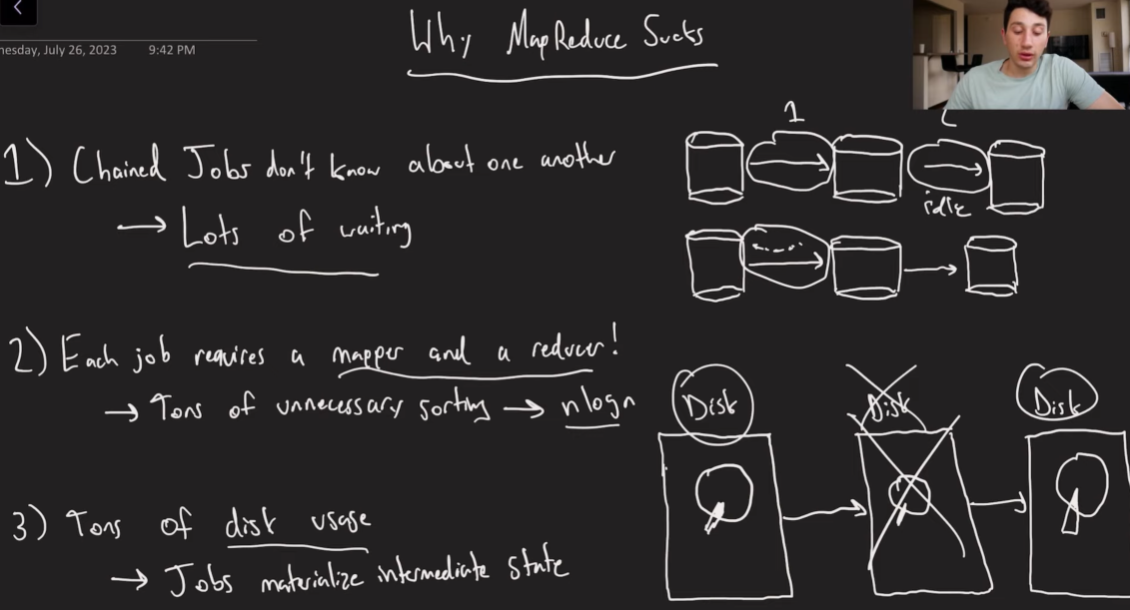 nesday, July 26, 2023 9:42 PM
Why MapReduce Sucks
1) Chained Jobs don't know about one another
→ Lots of waiting
1
idle
2) Each job requires a mapper and a reducer!
→ Tons of unnecessary sorting → nlogn
Disk Disk Disk
3) Tons of disk usage
→ Jobs materialize intermediate state